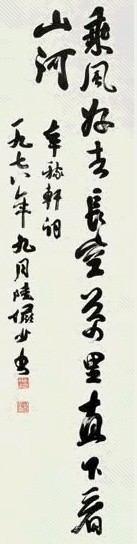 乘风好去长空万里直下看
山河
辛稼轩词
一九七八年九月陆俨少书